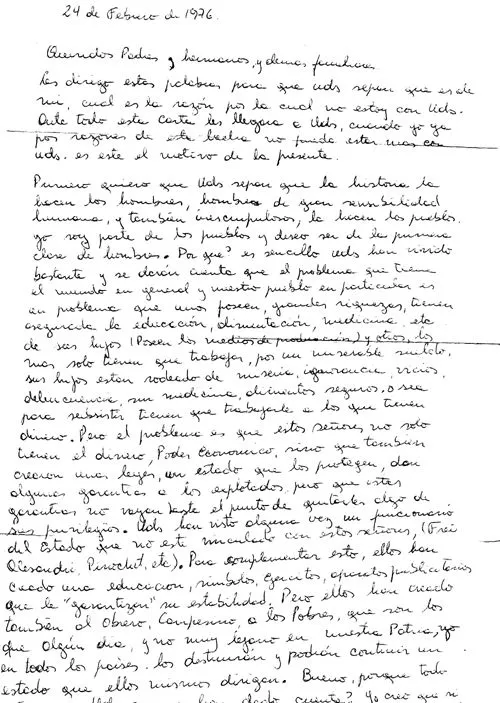 24 de Febrero de 1976.
Queridos Padres, hermanos, y demas familiares
Les dirigo estas palabras para que uds sepan que es de
mi, cual es la razón por la cual no estoy con Uds.
Ante todo esta carta les llegara a Uds, cuando yo ya
por razones de esta lucha no pueda estar mas con
uds. es este el motivo de la presente.
Primero quiero que Uds sepan que la historia la
hacen los hombres, hombres de gran sensibilidad
humana, y también inescrupulosos, la hacen los pueblos.
yo soy parte de los pueblos y deseo ser de la primera
clase de hombres. Por que? es sencillo uds han vivido
bastante y se darán cuenta que el problema que tiene
el mundo en general y nuestro pueblo en particular es
un problema que unos poseen, grandes riquezas, tienen
asegurada la educación, alimentación, medicina etc
de sus hijos (Poseen los medios de producción) y otros, los
mas solo tienen que trabajar, por un miserable sueldo,
sus hijos estan rodeado de miseria, ignorancia, vicios,
delincuencia, sin medicina, alimentos seguros, o sea
para subsistir tienen que trabajarle a los que tienen
dinero. Pero el problema es que estos señores no solo
tienen el dinero, Poder Economico, sino que también
crearon unas leyes, un estado que los protegen, dan
algunas garantias a los explotados, pero que estas
garantias no vayan hasta el punto de quitarles algo de
sus privilegios. Uds han visto alguna vez un funcionario
del Estado que no esté vinculado con estos señores, (Frei
Alesandri, Pinochet, etc). Para complementar esto, ellos han
creado una educacion, simbolos, Ejercitos, aparatos publicitarios
que le "garantizan" su estabilidad. Pero ellos han creado
también al Obrero, Campesino, a los Pobres, que son los
que algún dia, y no muy lejano en nuestra Patria, y
en todos los paises. los destruirán y podrán contruir un
estado que ellos mismos dirigan. Bueno, porque todo
han dado cuenta? Yo creo que si